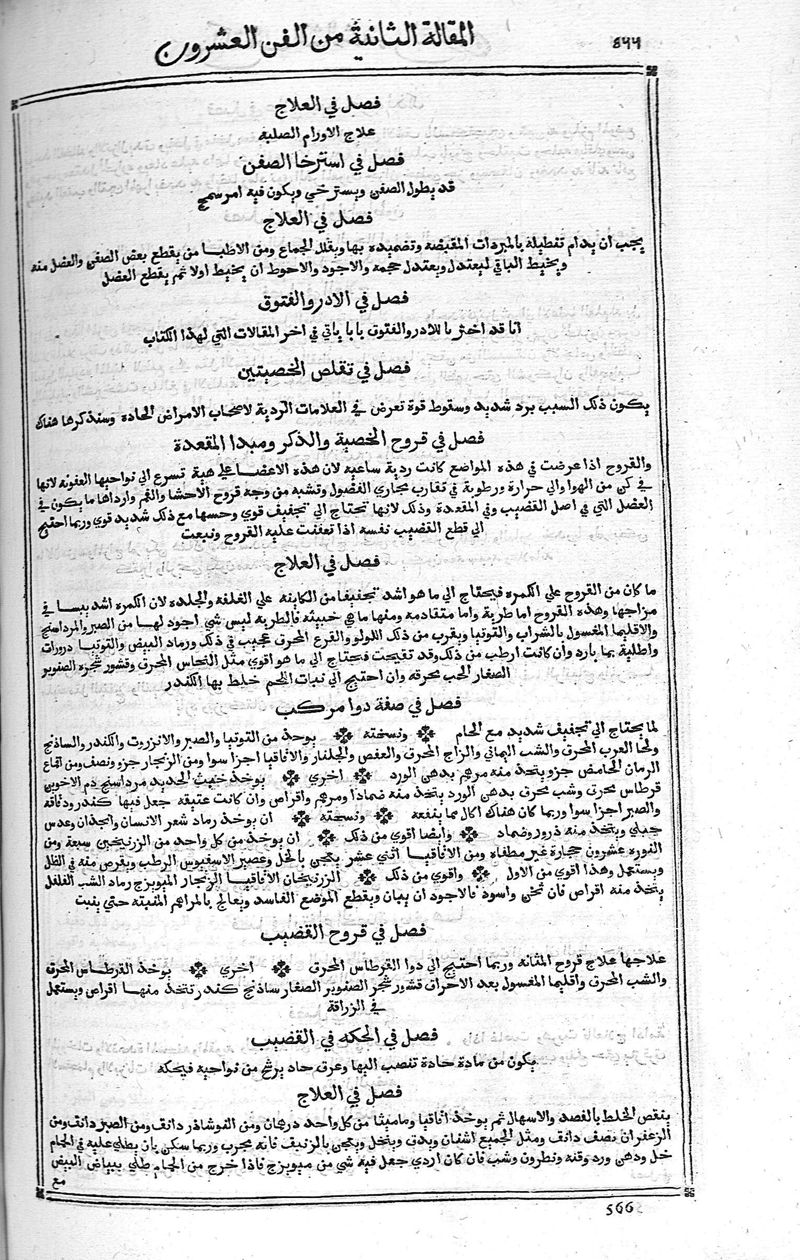 ٥٦٦ المقالة الثانية من الفن العشرون
فصل في العلاج
علاج الاورام الصلبه
فصل في استرخا الصفن
قد يطول الصفن ويسترخي ويكون فيه امر سمج
فصل في العلاج
يجب ان يدام تنطيله بالمبردات المقبضة وتضميده بها ويقلل الجماع ومن الاطبا من يقطع بعض الصفن والفضل منه
ويخيط الباقي ليعتدل ويعتدل حجمه والاجود والاحوط ان يخيط اولا ثم يقطع الفضل
فصل في الادر والفتوق
انا قد اخترنا للادر والفتوق بابا ياتي في اخر المقالات التي لهذا الكتاب
فصل في تقلص الخصيتين
يكون ذلك السبب برد شديد وسقوط قوة تعرض في العلامات الردية لاصحاب الامراض الحادة وسنذكرها هناك
فصل في قروح الخصية والذكر ومبدا المقعدة
والقروح اذا عرضت في هذه المواضع كانت ردية ساعيه لان هذه الاعضا علي هية تسرع الي نواحيها العفونه لانها
في كن من الهوا والي حرارة ورطوبة في تقارب مجاري الفضول وتشبه من وجه قروح الاحشا والفم وارداها ما يكون في
العضل التي في اصل القضيب وفي المقعدة وذلك لانها تحتاج الي تجفيف قوي وحسها مع ذلك شديد قوي وربما احتيج
الي قطع القضيب نفسه اذا تعفنت عليه القروح وسعت
فصل في العلاج
ما كان من القروح علي الكمره فيحتاج الي ما هو اشد تجفيفا من الكاينه علي الغلفه والجلده لان الكمره اشد يبسا في
مزاجها وهذه القروح اما طرية واما متقادمه ومنها ما هي خبيثه فالطريه ليس شي اجود لها من الصبر والمرداسنج
والاقليميا المغسول بالشراب والتوتيا ويقرب من ذلك اللولو والقرع المحرق عجيب في ذلك ورماد البيض والتوتيا درورات
واطلية بما بارد وان كانت ارطب من ذلك وقد تقيحت فيحتاج الي ما هو اقوي مثل النحاس المحرق وقشور شجره الصنوبر
الصغار الحب محرقه وان احتيج الي نبات اللحم خلط بها الكندر
فصل في صفة دوا مركب
لما يحتاج الي تجفيف شديد مع الحام ونسخته يوخذ من التوتيا والصبر والانزروت والكندر والساذنج
ولحا الغرب المحرق والشب اليماني والزاج المحرق والعفص والجلنار والاقاقيا اجزا سوا ومن الزنجار جزو ونصف ومن اقماع
الرمان الحامض جزو يتخذ منه مرهم بدهن الورد اخري يوخذ خبث الحديد مرداسنج دم الاخوين
قرطاس محرق وشب محرق بدهن الورد يتخذ منه ضمادا ومرهم واقراص وان كانت عتيقه جعل فيها كندر ودقاقه
والصبر اجزا سوا وربما كان هناك اكال مما ينفعه ونسخته ان يوخذ رماد شعر الانسان وانجدان وعدس
جبلي ويتخذ منه ذرور وضماد وايضا اقوي من ذلك ان يوخذ من كل واحد من الزرنيخين سبعة ومن
النوره عشرون حجارة غير مطفاه ومن الاقاقيا اثني عشر يعجن بالخل وعصير الاسفيوس الرطب ويقرص منه في الظل
ويستعمل وهذا اقوي من الاول واقوي من ذلك الزرنيخان الاقاقيا الزنجار الميويزج رماد الشب الفلفل
يتخذ منه اقراص فان تحن واسود فالاجود ان يبان ويقطع الموضع الفاسد ويعالج بالمراهم المنبته حتي ينبت
فصل في قروح القضيب
علاجها علاج قروح المثانه وربما احتيج الي دوا القرطاس المحرق اخري يوخذ القرطاس المحرق
والشب المحرق واقليميا المغسول بعد الاحراق قشور شجر الصنوبر الصغار ساذنج كندر تتخذ منها اقراص ويستعمل
في الزراقة
فصل في الحكه في القضيب
يكون من مادة حادة تنصب اليها وعرق حاد يرشح من نواحيه فيحكه
فصل في العلاج
ينقص الخلط بالفصد والاسهال ثم يوخذ اقاقيا وماميثا من كل واحد درهمان ومن النوشاذر دانق ومن الصبر دانق ومن
الزعفران نصف دانق ومثل الجميع اشنان ويدق وينخل ويعجن بالزنبق فانه مجرب وربما سكن بان يطلي عليه في الحمام
خل ودهن ورد وقنه ونطرون وشب فان كان اردي جعل فيه شي من ميويزج فاذا خرج من الحمام طلي ببياض البيض
مع
566